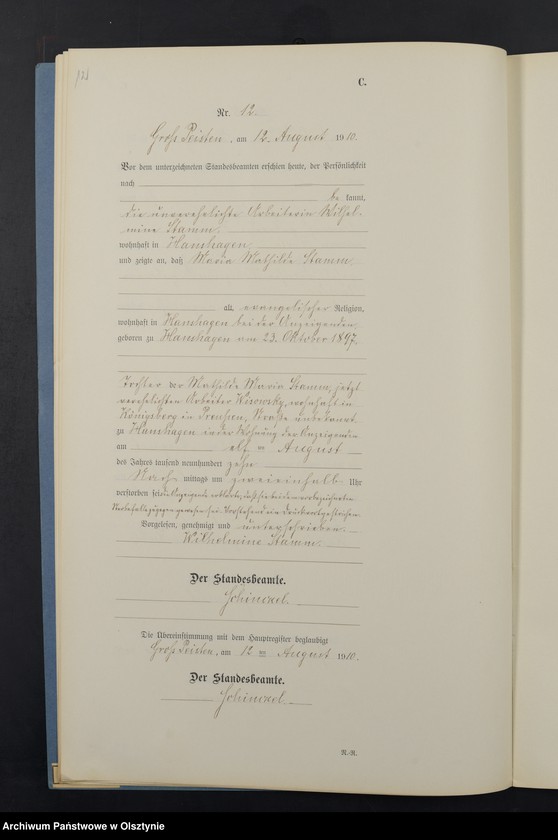 C.
Nr. 12.
Groß Peisten, am 12. August 1910.
Vor dem unterzeichneten Standesbeamten erschien heute, der Persönlichkeit
nach
be kannt,
die unverehelichte Arbeiterin Wilhel-
mine Stamm,
wohnhaft in Hanshagen,
und zeigte an, daß Maria Mathilde Stamm,
alt, evangelischer Religion,
wohnhaft in Hanshagen bei der Anzeigenden,
geboren zu Hanshagen am 23. Oktober 1897,
Tochter der Mathilde Maria Stamm, jetzt
verehelichten Arbeiter Kisowsky, wohnhaft in
Königsberg in Preußen, Straße unbekannt
zu Hanshagen in der Wohnung der Anzeigenden
am elf ten August
des Jahres tausend neunhundert zehn
Nach mittags um zweieinhalb Uhr
verstorben sei. die Anzeigende erklärte, daß sie bei dem vorbezeichneten
Sterbefall zugegen gewesen sei. Vorstehend ein Druckwort gestrichen.
Vorgelesen, genehmigt und unterschrieben.
Wilhelmine Stamm.
Der Standesbeamte.
Schinckel.
Die Übereinstimmung mit dem Hauptregister beglaubigt
Groß Peisten, am 12 ten August 1910.
Der Standesbeamte.
Schinckel.
N.-R.
Archiwum Państwowe w Olsztynie